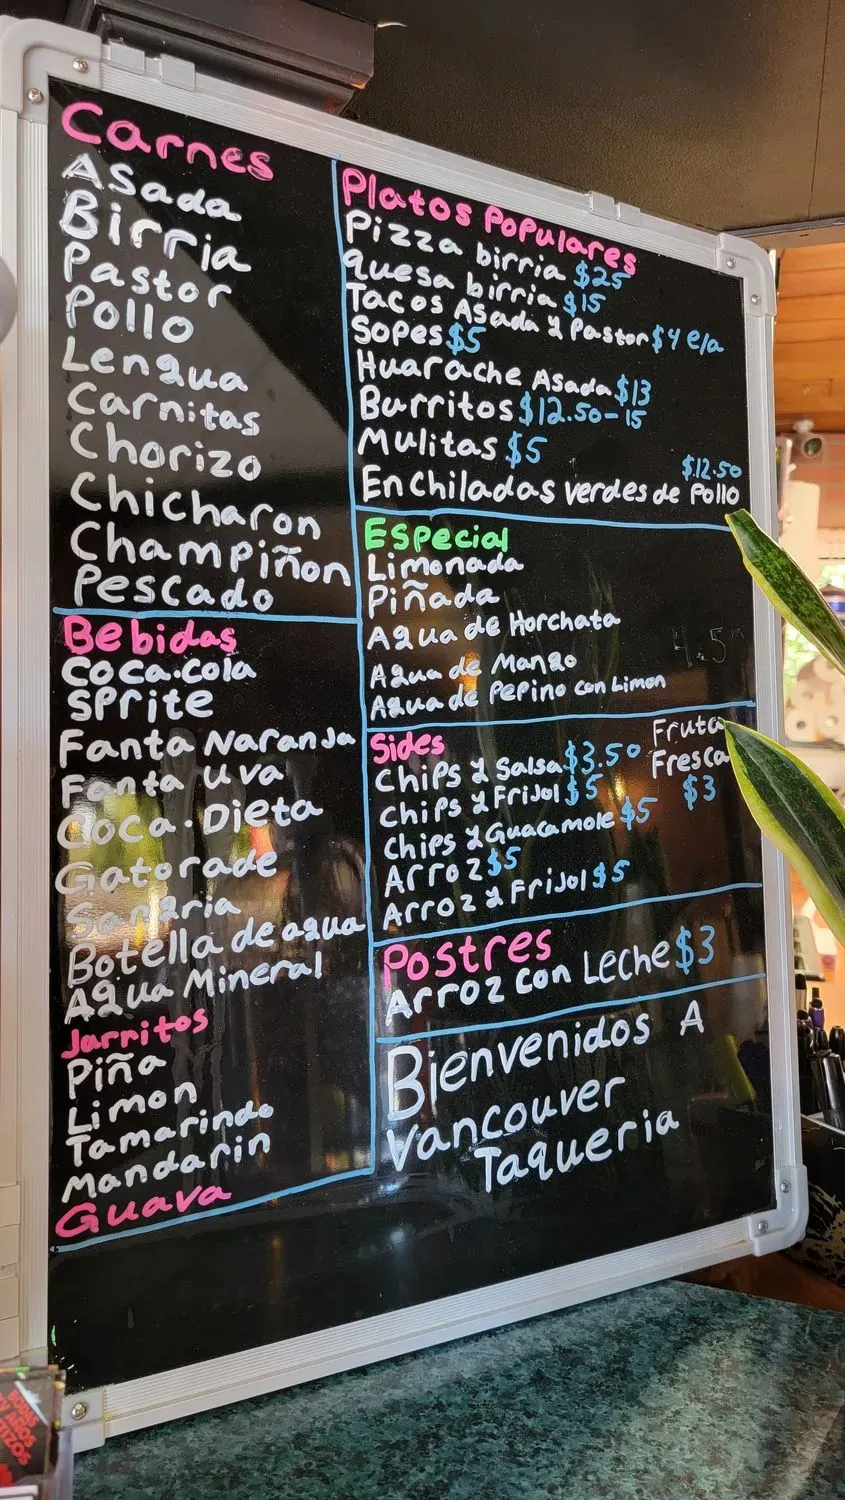 Carnes
Asada
Birria
Pastor
Pollo
Lengua
Carnitas
Chorizo
Chicharon
Champiñon
Pescado
Bebidas
Coca.cola
Sprite
Fanta Naranja
Fanta uva
Coca.Dieta
Gatorade
Sangria
Botella de agua
Agua Mineral
Jarritos
Piña
Limon
Tamarindo
Mandarin
Guava
Platos Populares
Pizza birria $25
quesa birria $15
Tacos Asada y Pastor $4 e/a
Sopes $5
Huarache Asada $13
Burritos $12.50-15
Mulitas $5
$12.50
Enchiladas verdes de Pollo
Especial
Limonada
Piñada
Agua de Horchata
Agua de Mango
Agua de Pepino con Limon
Sides
Chips y Salsa $3.50
Chips y Frijol $5
Chips y Guacamole $5
Arroz $5
Arroz y Frijol $5
Fruta
Fresca
$3
Postres
Arroz con Leche $3
Bienvenidos A
Vancouver
Taqueria